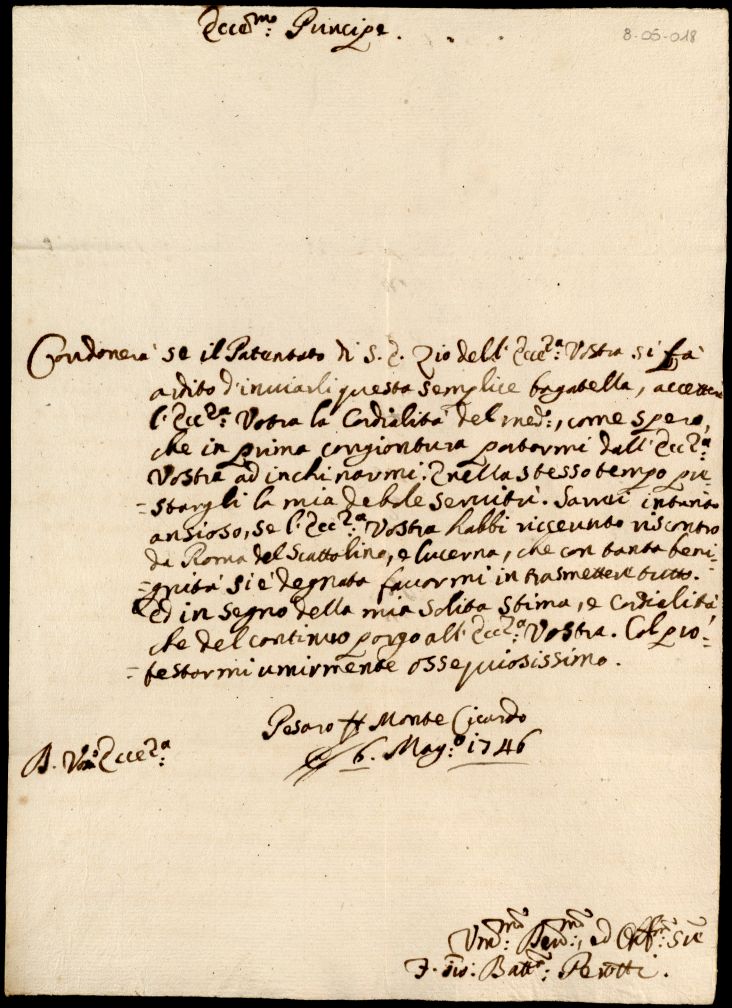 Ecce.mo: Principe.
8-05-018
Condonerà se il Patentato di S. E. Zio dell' Ecce.za: Vostra si fà
ardito d'inviarli questa semplice bagatella, accetterà
l'Ecc.za: Vostra la Cordialità del med.:, come spero,
che in prima congiontura portarmi dall' Ecc.za:
Vostra ad inchinarmi: E nello stesso tempo pre=
=stargli la mia debole servitù. Sarrei intanto
ansioso, se l'Ecc.za: Vostra habbi riceunto riscontro
da Roma del Scattolino, e lucerna, che con tanta beni=
=gnità si è degnata favormi in trasmettere tutto.
Ed in segno della mia solita stima, e Cordialità
che del continuo porgo all' Ecc.za: Vostra. Col pro=
=testarmi umirmente ossequiosissimo.
Pesaro Monte Cicardo
6. Mag.o: 1746
D. Vra: Ecce.za:
Um.mo: Dev.mo:, ed Obb.mo: Sre
F. Gio: Batt.a: Perotti.